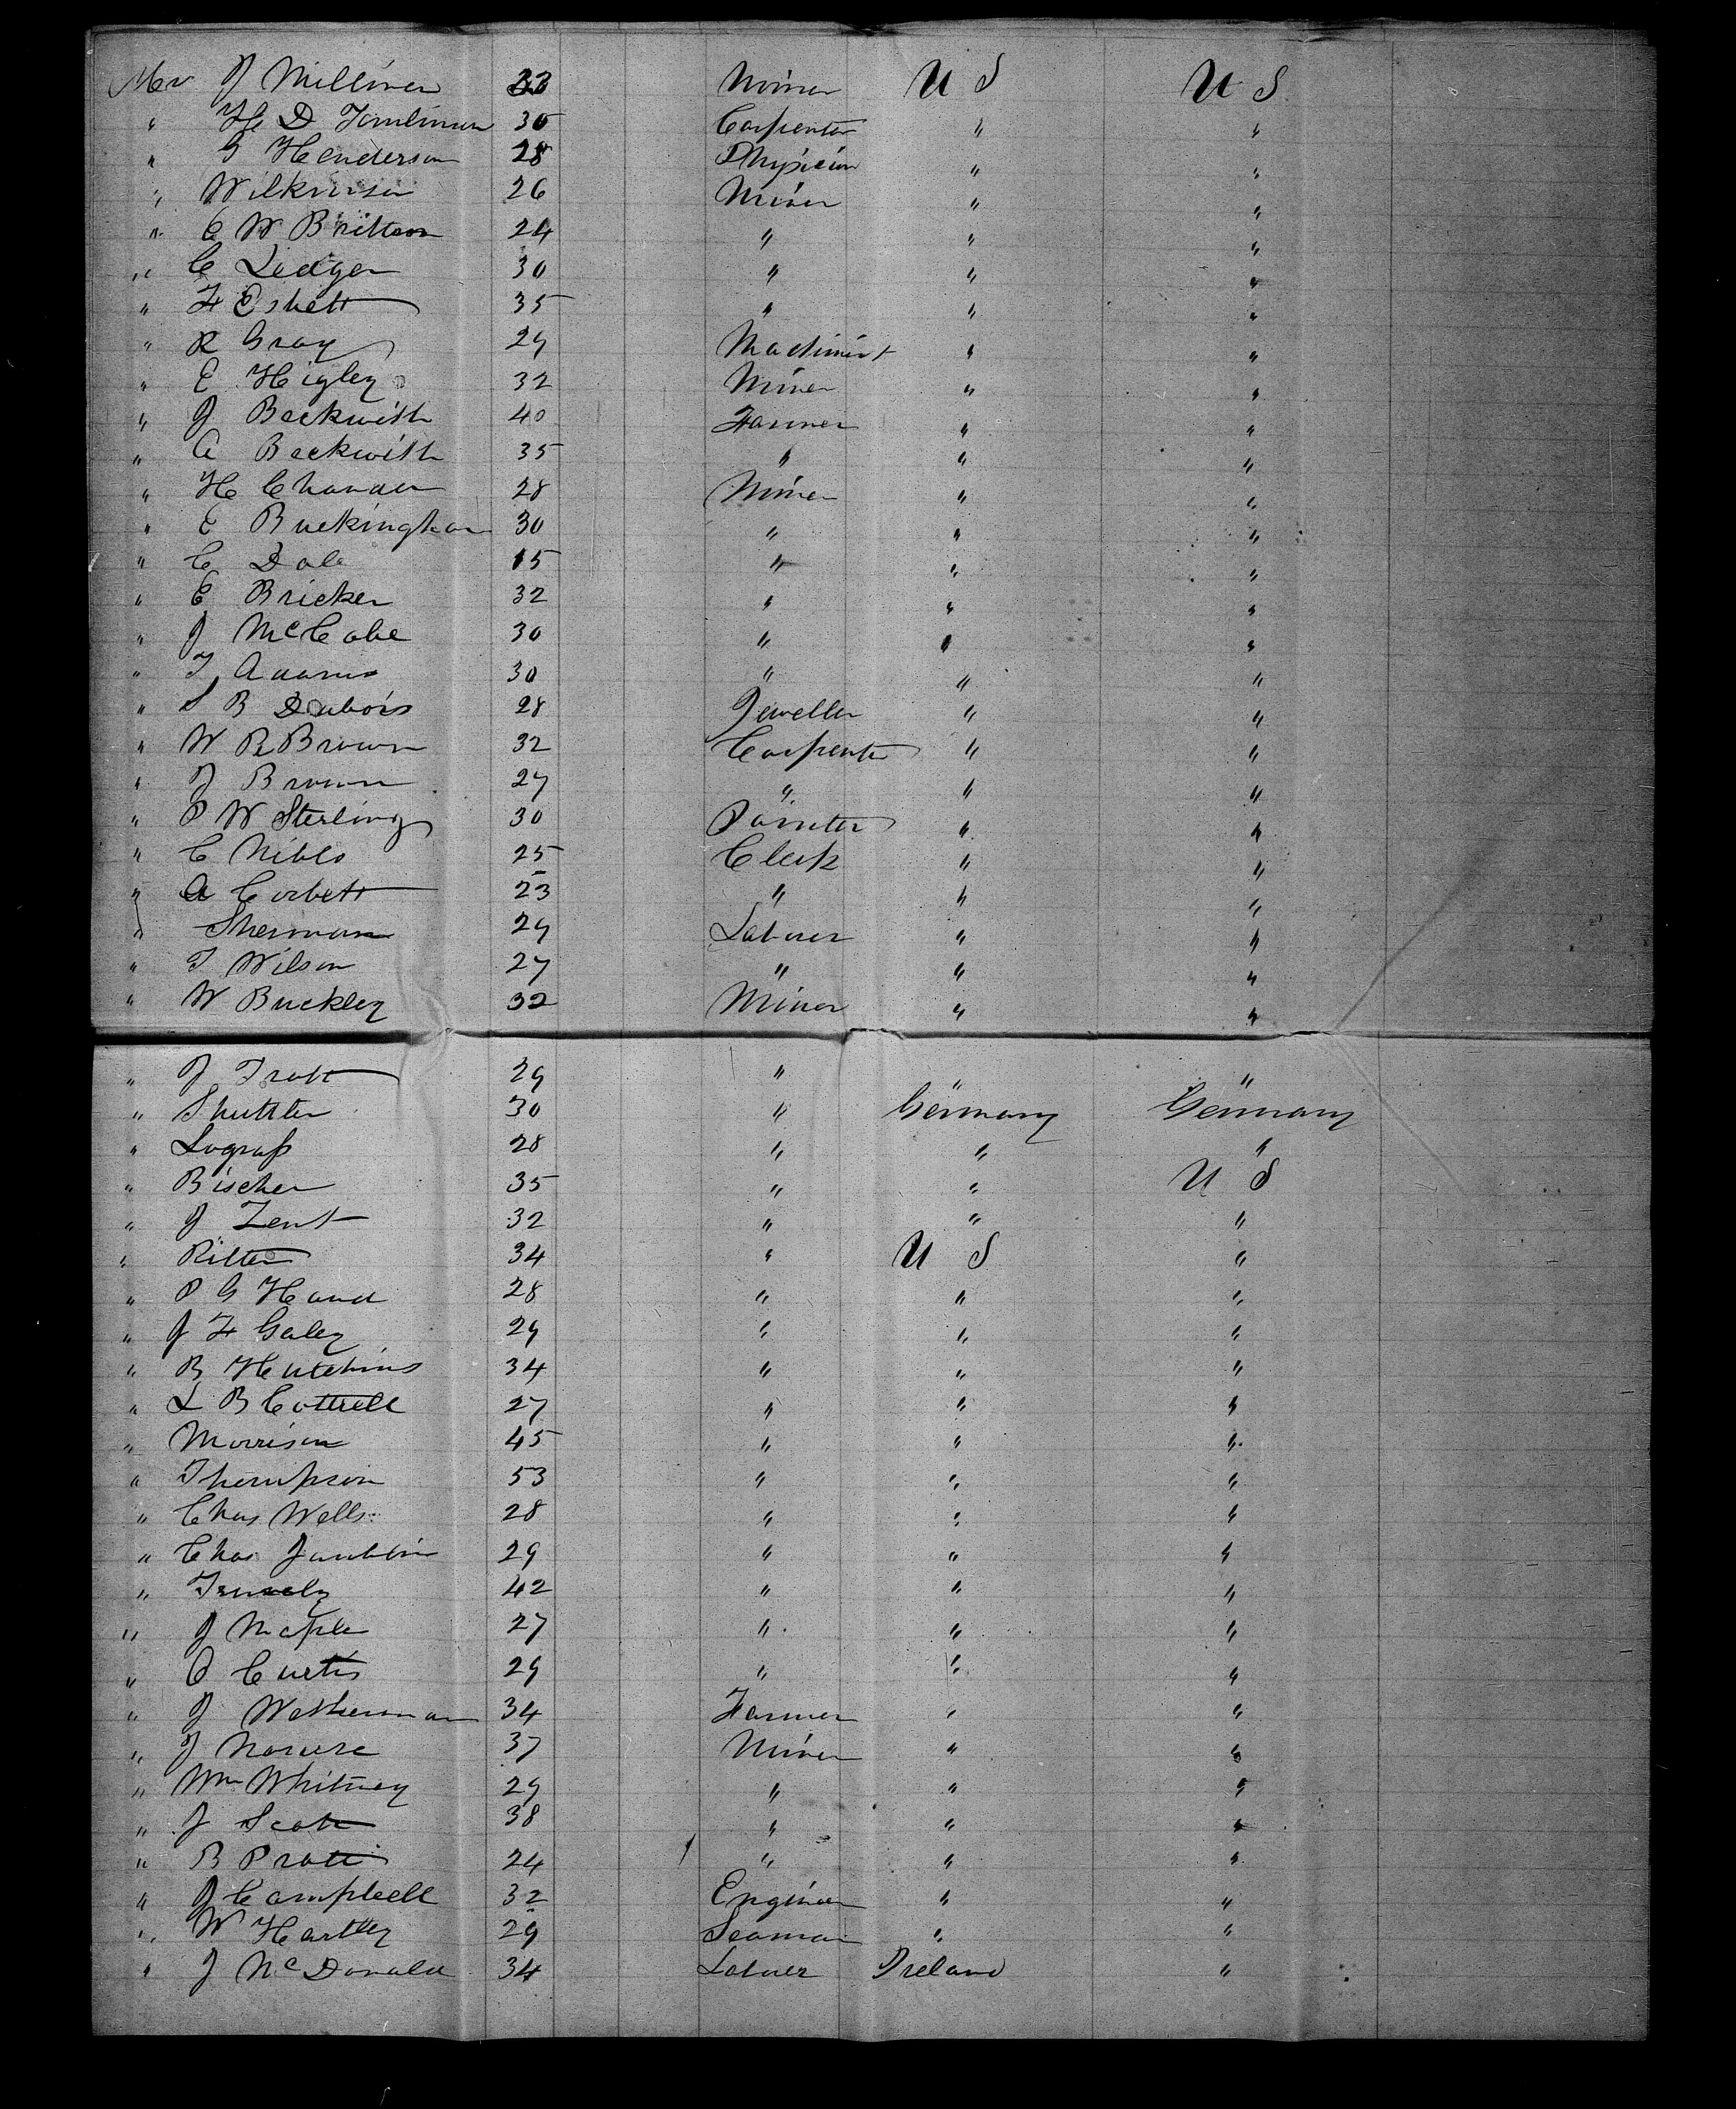 Mr J Milliner 22 Miner U S U S
" H D Tomlinson 30 Carpenter " "
" G Henderson 28 Physician " "
" Wilkinson 26 Miner " "
" C W Britton 24 " " "
" C Ledger 30 " " "
" F Esbett 35 " " "
" R Gray 29 Machinist " "
" E Higley 32 Miner " "
" J Beckwith 40 Farmer " "
" A Beckwith 35 " " "
" H Chandler 28 Miner " "
" E Buckingham 30 " " "
" C Dale 15 " " "
" E Bricker 32 " " "
" J McCabe 30 " " "
" T Adams 30 " " "
" S B Dubois 28 Jeweller " "
" W R Brown 32 Carpenter " "
" J Brown 27 " " "
" P W Sterling 30 Painter " "
" C Niblo 25 Clerk " "
" A Corbett 23 " " "
" Sherman 29 Laborer " "
" T Wilson 27 " " "
" W Buckley 32 Miner " "
" J Trott 29 " " "
" Shuttler 30 " Germany Germany
" Lograss 28 " " "
" Bischer 35 " " U S
" J Zent 32 " " "
" Ritter 34 " U S "
" P G Hand 28 " " "
" J F Galey 29 " " "
" B Hutchins 34 " " "
" L B Cottrell 27 " " "
" Morrison 45 " " "
" Thompson 53 " " "
" Chas Wells 28 " " "
" Chas 29 " " "
" 42 " " "
" J Maple 27 " " "
" O Curtis 29 " " "
" J Wetherman 34 Farmer " "
" J 37 Miner " "
" Wm Whitney 29 " " "
" J Scott 38 " " "
" B Pratt 24 " " "
" J Campbell 32 Engineer " "
" W Hartley 29 Seaman " "
" J McDonald 34 Laborer Ireland "